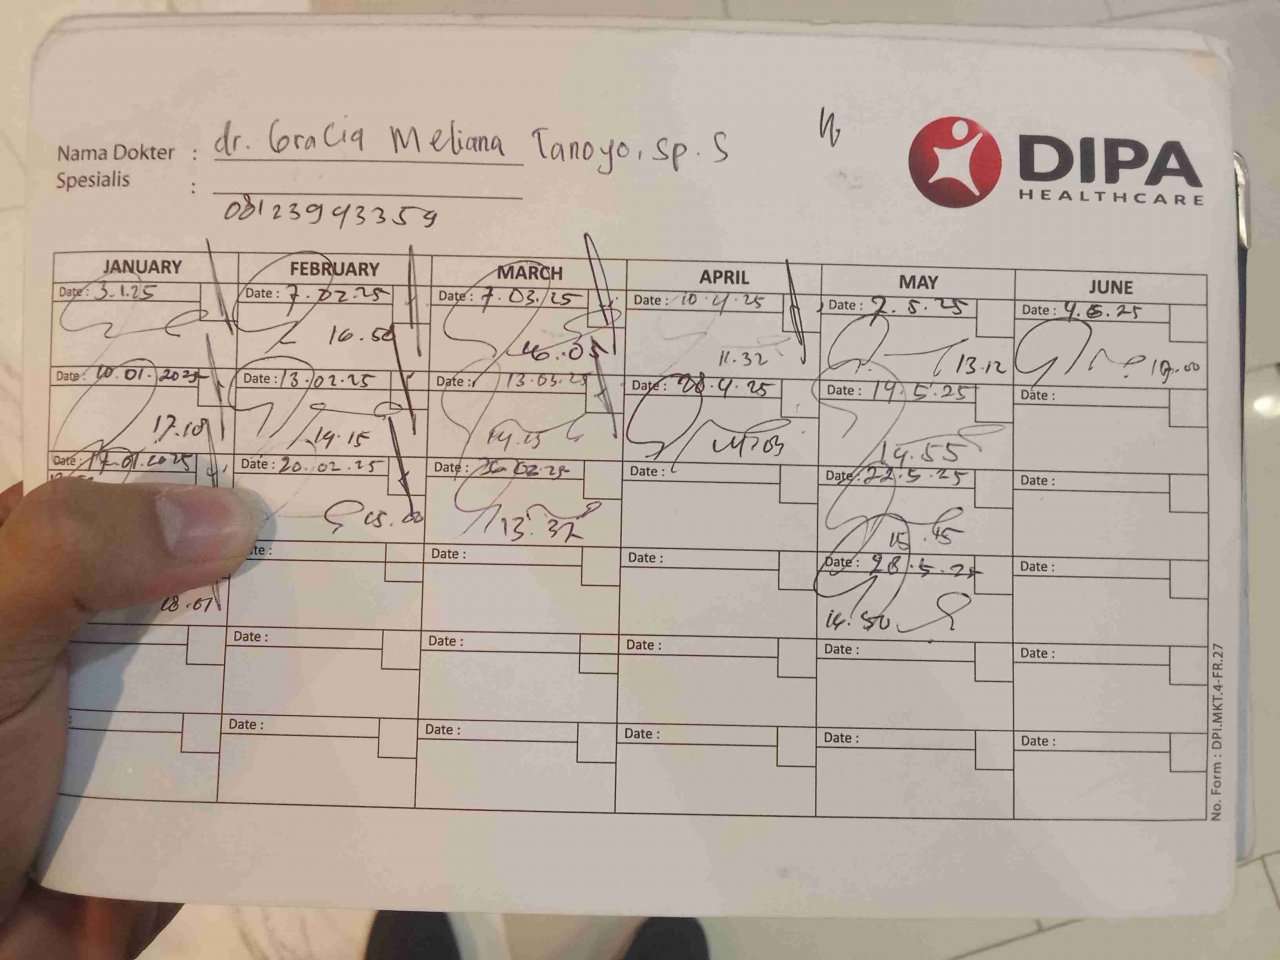 Nama Dokter : dr. Gracia Meliana Tanoyo, Sp. S
Spesialis :
08123993359
DIPA
HEALTHCARE
JANUARY FEBRUARY MARCH APRIL MAY JUNE
Date : 3.1.25 Date : 7.02.25 Date : 7.03.25 Date : 10.4.25 Date : 2.5.25 Date : 4.6.25
16.50 16.05 11.32 13.12 19.00
Date : 10.01.2025 Date : 13.02.25 Date : 13.03.25 Date : 28.4.25 Date : 19.5.25 Date :
17.10 14.15 14.15 14.55
Date : 17.01.2025 Date : 20.02.25 Date : Date : Date : 22.5.25 Date :
15.00 13.37 15.45
Date : Date : Date : Date : 28.5.25 Date :
18.01 14.50
Date : Date : Date : Date : Date :
Date : Date : Date : Date : Date :
No. Form : DPI.MKT.4-FR.27